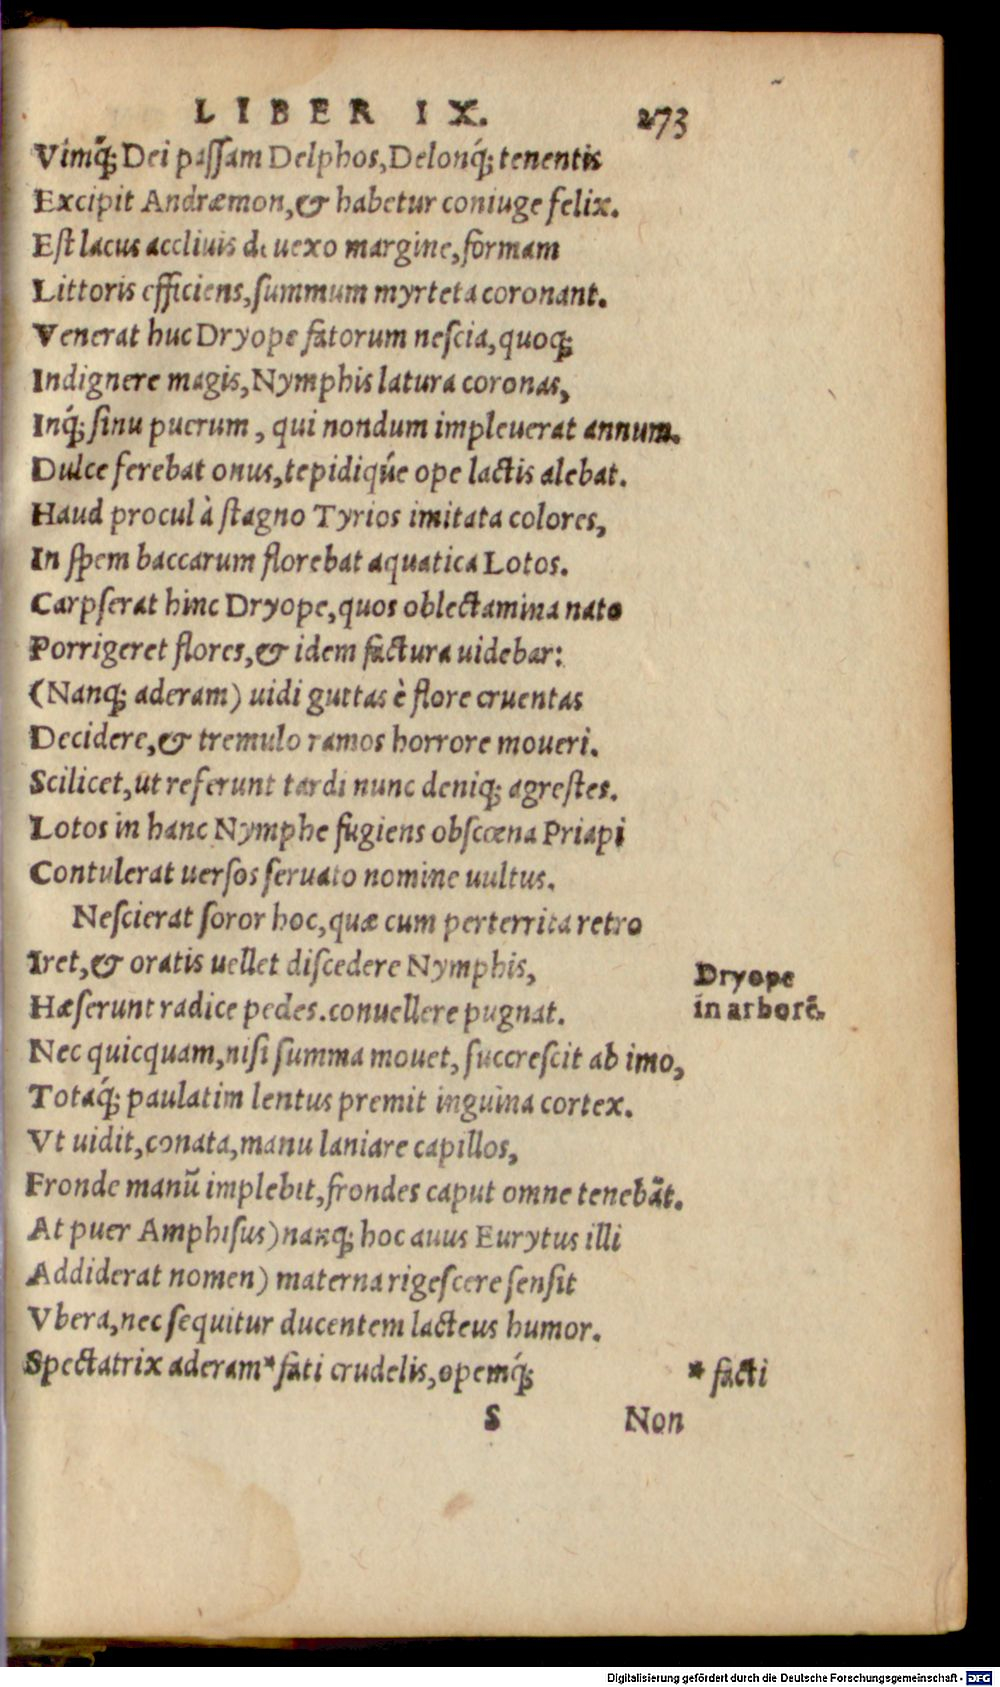 LIBER IX. 273
Vimq́; Dei passam Delphos, Delonq́; tenentis
Excipit Andræmon, & habetur coniuge felix.
Est lacus accliuis deuexo margine, formam
Littoris efficiens, summum myrteta coronant.
Venerat huc Dryope fatorum nescia, quoq;
Indignere magis, Nymphis latura coronas,
Inq́; sinu puerum, qui nondum impleuerat annum.
Dulce ferebat onus, tepidiq́ue ope lactis alebat.
Haud procul à stagno Tyrios imitata colores,
In spem baccarum florebat aquatica Lotos.
Carpserat hinc Dryope, quos oblectamina nato
Porrigeret flores, & idem factura uidebar:
(Nanq; aderam) uidi guttas è flore cruentas
Decidere, & tremulo ramos horrore moueri.
Scilicet, ut referunt tardi nunc deniq; agrestes.
Lotos in hanc Nymphe fugiens obscœna Priapi
Contulerat uersos seruato nomine uultus.
Nescierat soror hoc, quæ cum perterrita retro
Iret, & oratis uellet discedere Nymphis,
Dryope
in arborē.
Hæserunt radice pedes. conuellere pugnat.
Nec quicquam, nisi summa mouet, succrescit ab imo,
Totaq́; paulatim lentus premit inguina cortex.
Vt uidit, conata, manu laniare capillos,
Fronde manū implebit, frondes caput omne tenebāt.
At puer Amphisus) nanq; hoc auus Eurytus illi
Addiderat nomen) materna rigescere sensit
Vbera, nec sequitur ducentem lacteus humor.
Spectatrix aderam* fati crudelis, opemq́;
* facti
S Non
Digitalisierung gefördert durch die Deutsche Forschungsgemeinschaft - DFG